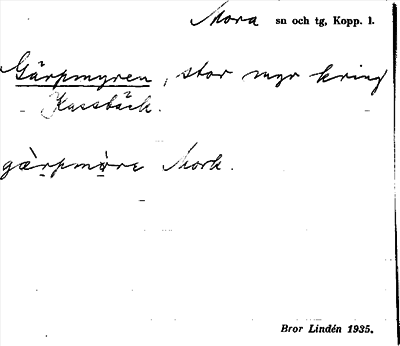 Mora sn och tg, Kopp. l.
Gärpmyren, stor myr kring
Kassbäck.
gä̀rpmỳre Mork.
Bror Lindén 1935.